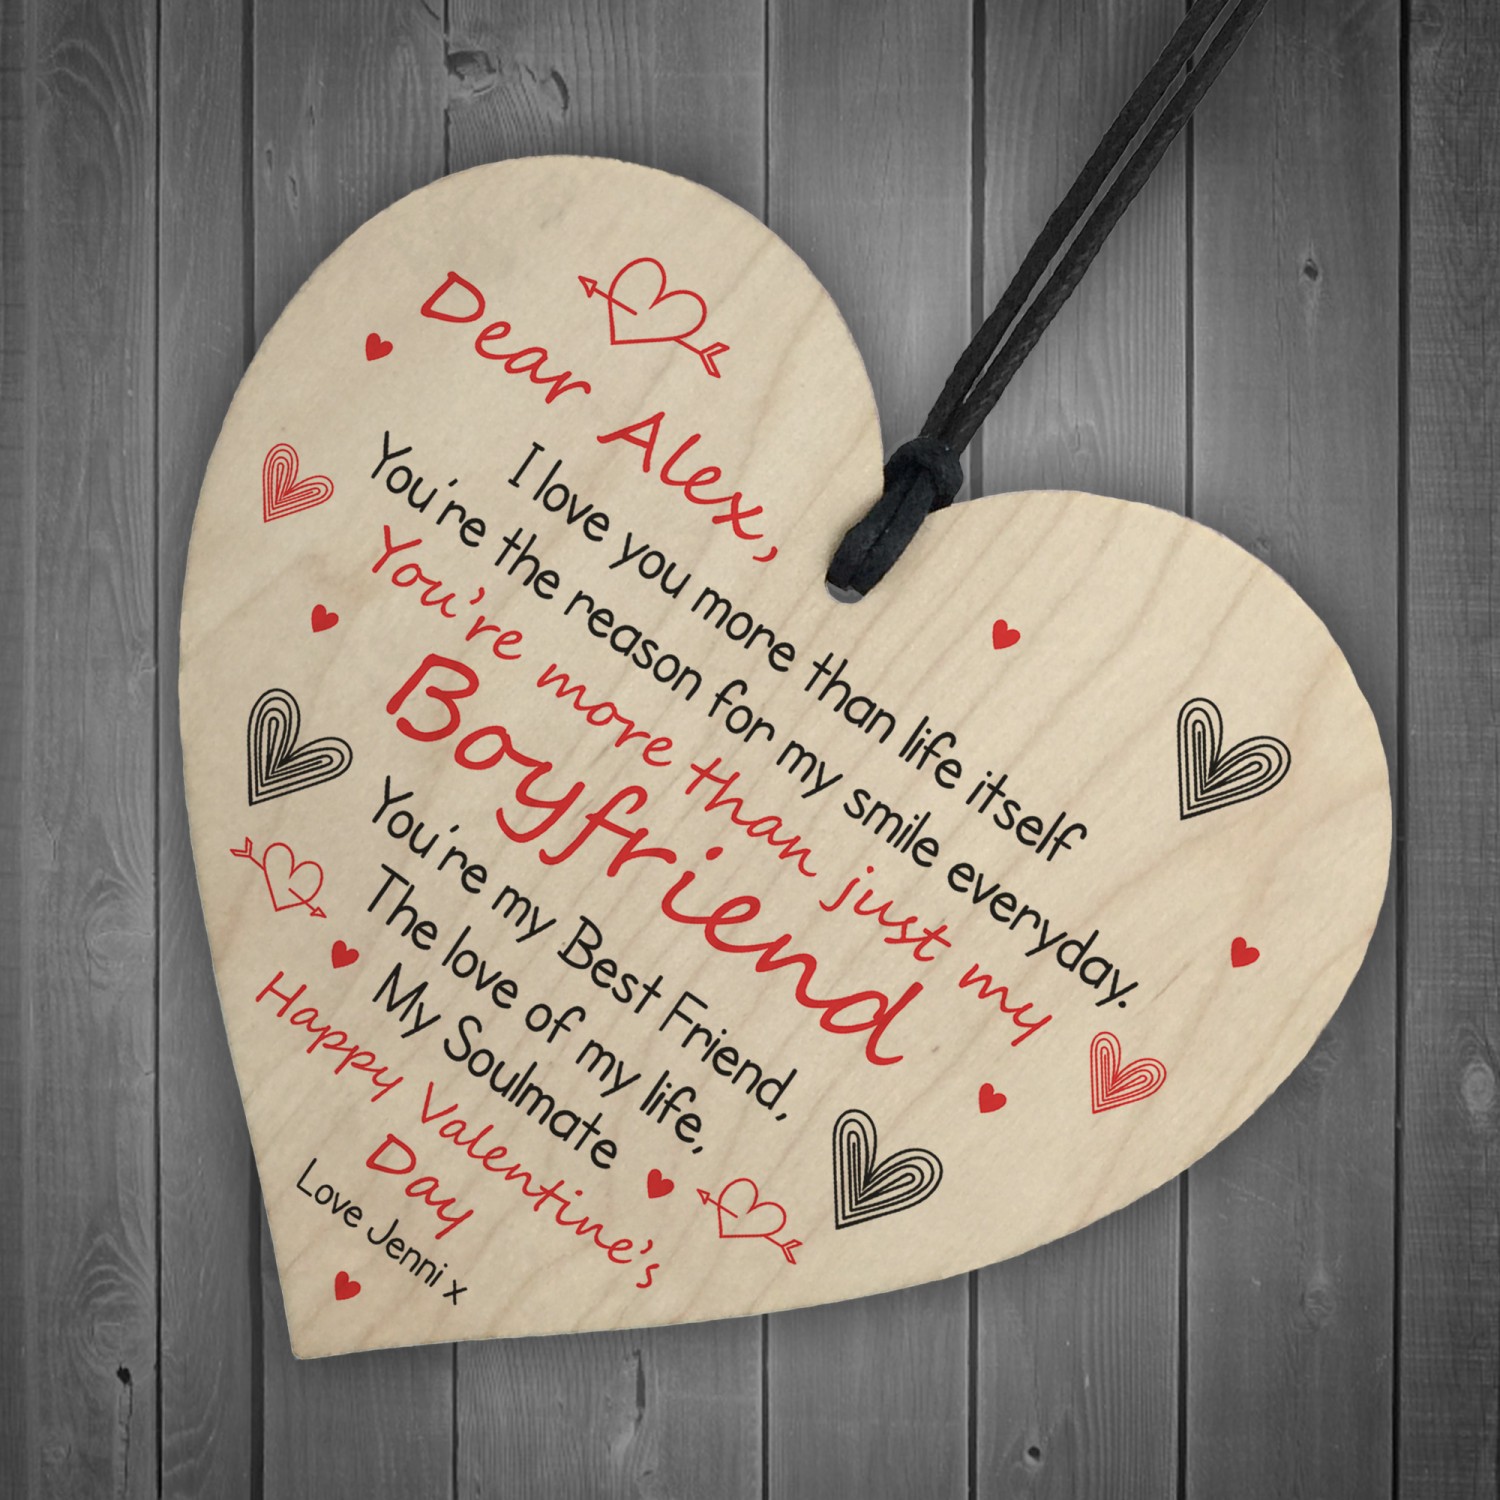 Dear Alex,
I love you more than life itself
You're the reason for my smile everyday.
You're more than just my
Boyfriend
You're my Best Friend,
The love of my life,
My Soulmate
Happy Valentine's
Day
Love Jenni x